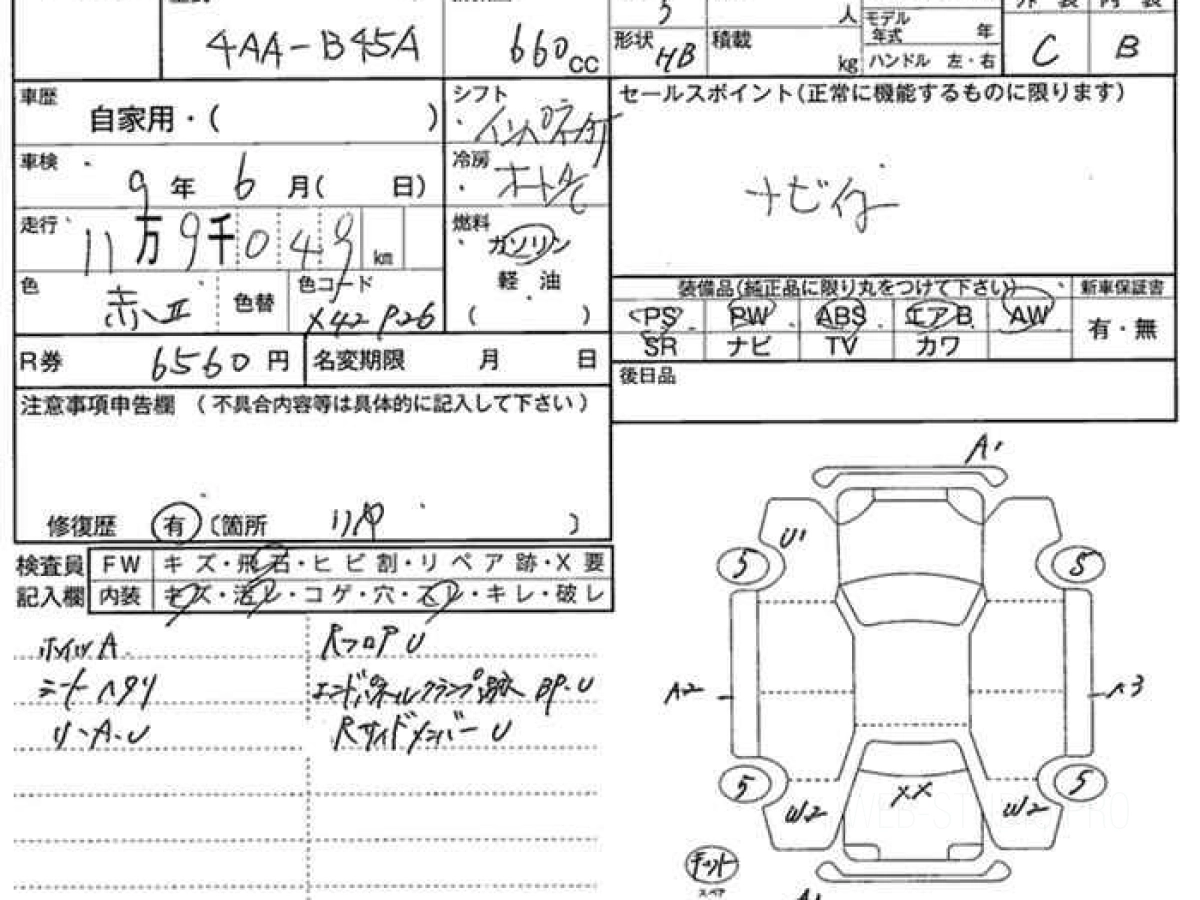 4AA-B45A
660cc
5
人
モデル
年式 年
形状 HB
積載 kg
ハンドル 左・右
C
B
車歴 自家用・( )
シフト
車検 9年 6月( 日)
冷房 オートAC
走行 11万9千049 km
燃料 ガソリン
軽 油
( )
色 赤II
色替
色コード X42 P26
R券 6560円
名変期限 月 日
セールスポイント(正常に機能するものに限ります)
ナビ付
装備品(純正品に限り丸をつけて下さい)
新車保証書
PS PW ABS エアB AW
有・無
SR ナビ TV カワ
後日品
注意事項申告欄 (不具合内容等は具体的に記入して下さい)
修復歴 有〔箇所 リヤ 〕
検査員
記入欄
FW キズ・飛石・ヒビ割・リペア跡・X要
内装 キズ・汚レ・コゲ・穴・スレ・キレ・破レ
ホイルA
シートヘタリ
リ-A-U
RフロアU
エンドパネルクランプ跡 BP.U
RサイドメンバーU
A1
U1
5
5
A2
A3
5
5
W2
XX
W2
スペア
A1